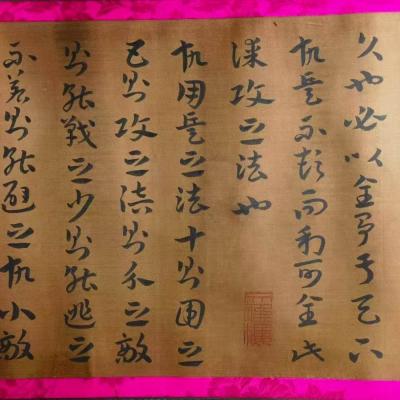 久也必以全爭于天下
故兵不頓而利可全此
謀攻之法也
故用兵之法十則圍之
五則攻之倍則分之敵
則能戰之少則能逃之
不若則能避之故小敵